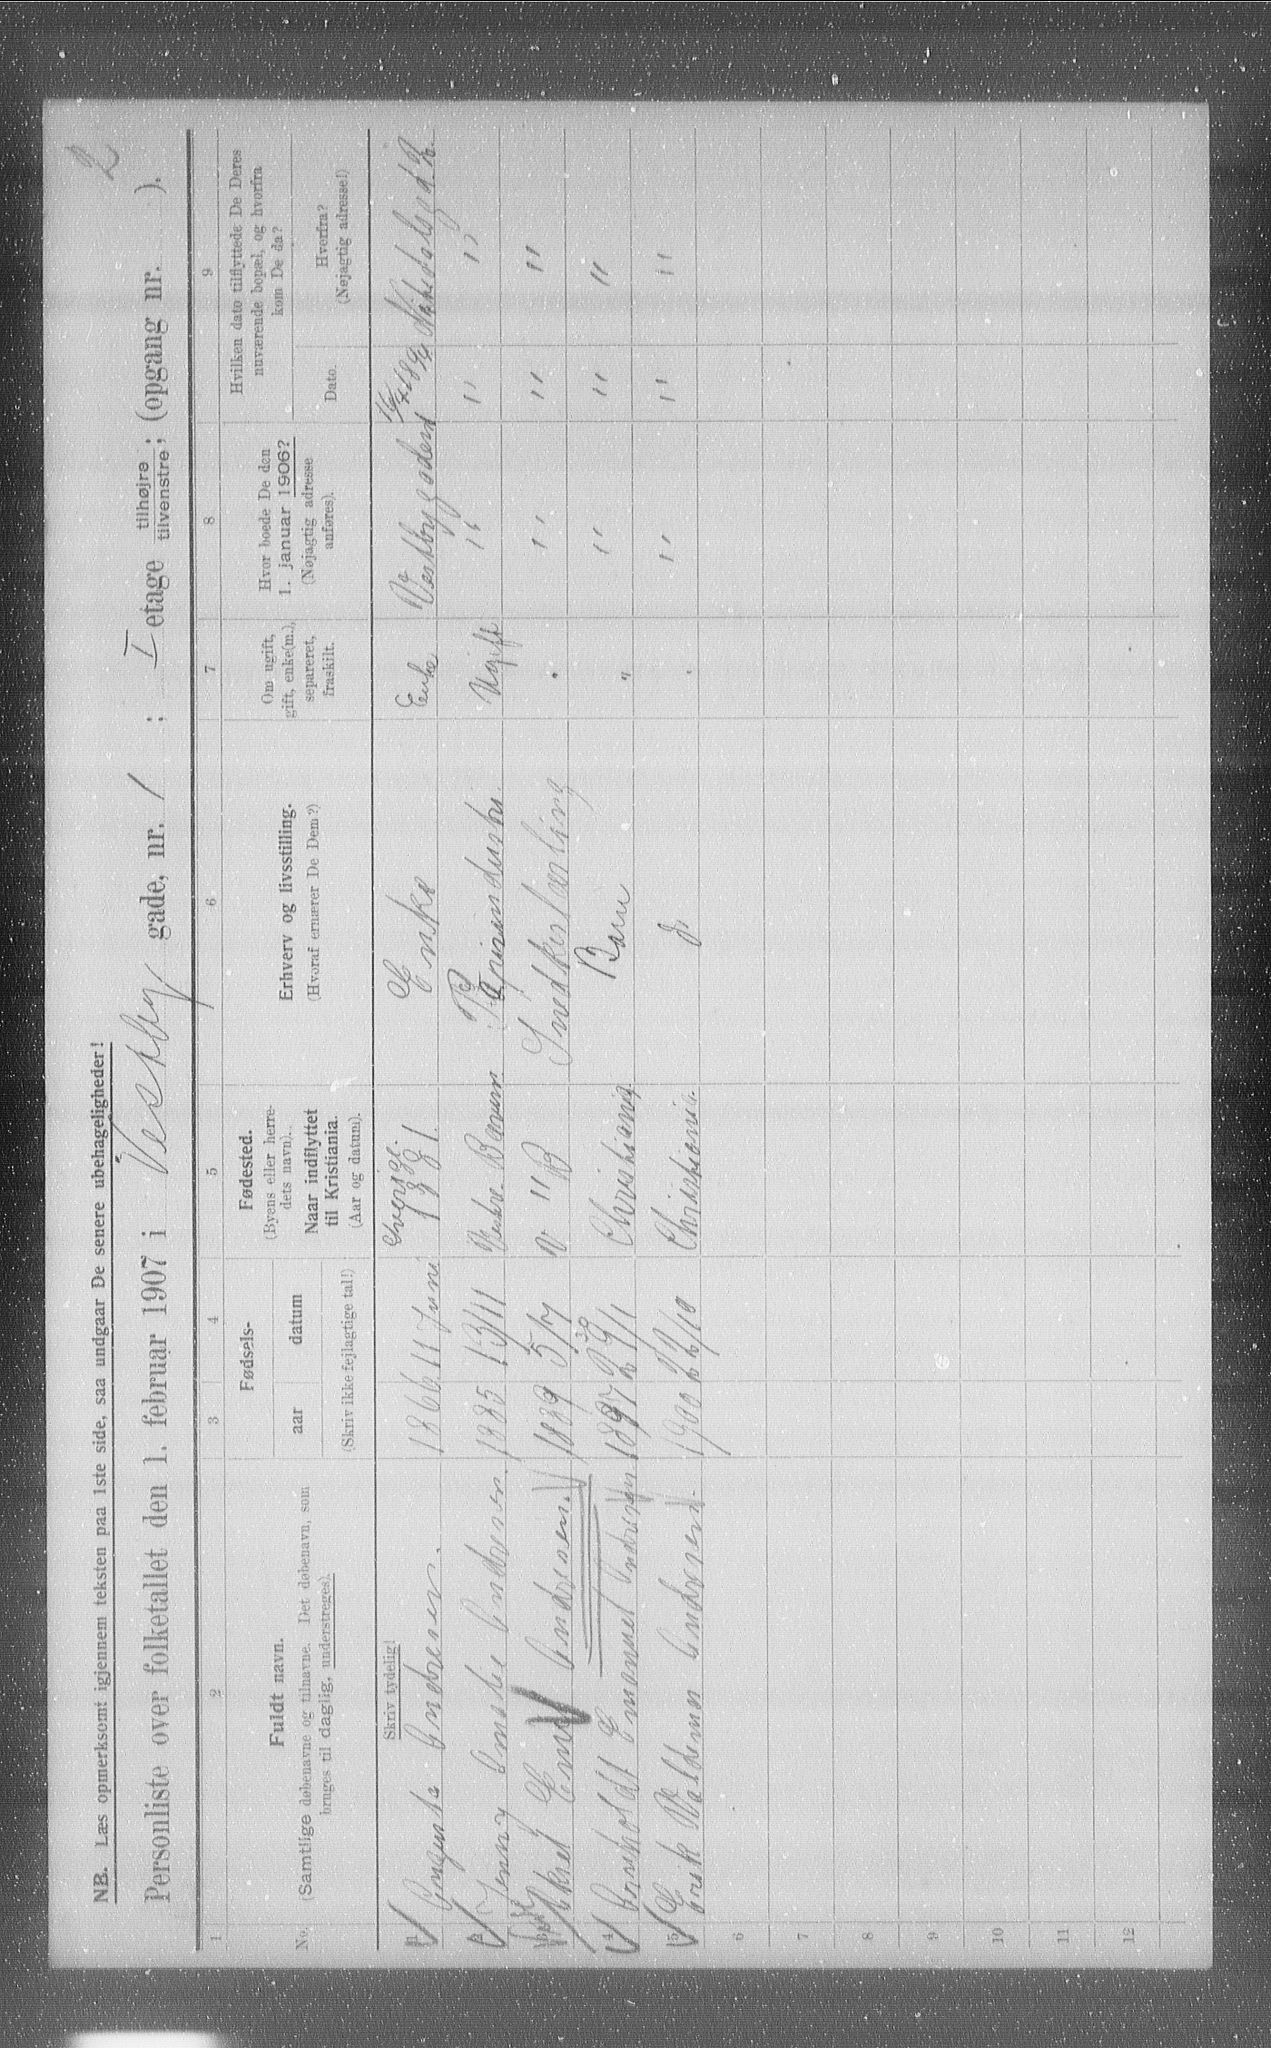 2
NB. Læs opmerksomt igjennem teksten paa 1ste side, saa undgaar De senere ubehageligheder!
Personliste over folketallet den 1. februar 1907 i Vestby gade, nr. 1 ; I etage tilhøjre / tilvenstre ; (opgang nr. ).
1 2 3 4 5 6 7 8 9
No.
Fuldt navn.
(Samtlige døbenavne og tilnavne. Det døbenavn, som
bruges til daglig, understreges).
Skriv tydelig!
Fødsels-
aar datum
(Skriv ikke fejlagtige tal!)
Fødested.
(Byens eller herre-
dets navn).
Naar indflyttet
til Kristiania.
(Aar og datum).
Erhverv og livsstilling.
(Hvoraf ernærer De Dem?)
Om ugift,
gift, enke(m.),
separeret,
fraskilt.
Hvor boede De den
1. januar 1906?
(Nøjagtig adresse
anføres).
Hvilken dato tilflyttede De Deres
nuværende bopæl, og hvorfra
kom De da?
Dato.
Hvorfra?
(Nøjagtig adresse!)
1 Augusta Andresen. 1866 11 Juni Sverige. 1881. Enke Enke Vestbygaden 1
2 Jenny Amalie Andresen. 1885 13/11 Vestre Bærum Ugift " " "
3 Andresen. 1889 5/7 V " B Snedkerlærling " " " "
4 Emanuel Andresen 1897 29/1 Christiania. Barn " " " "
5 Erik Valdemar Andresen. 1900 22/10 Christiania. " " " "
6
7
8
9
10
11
12